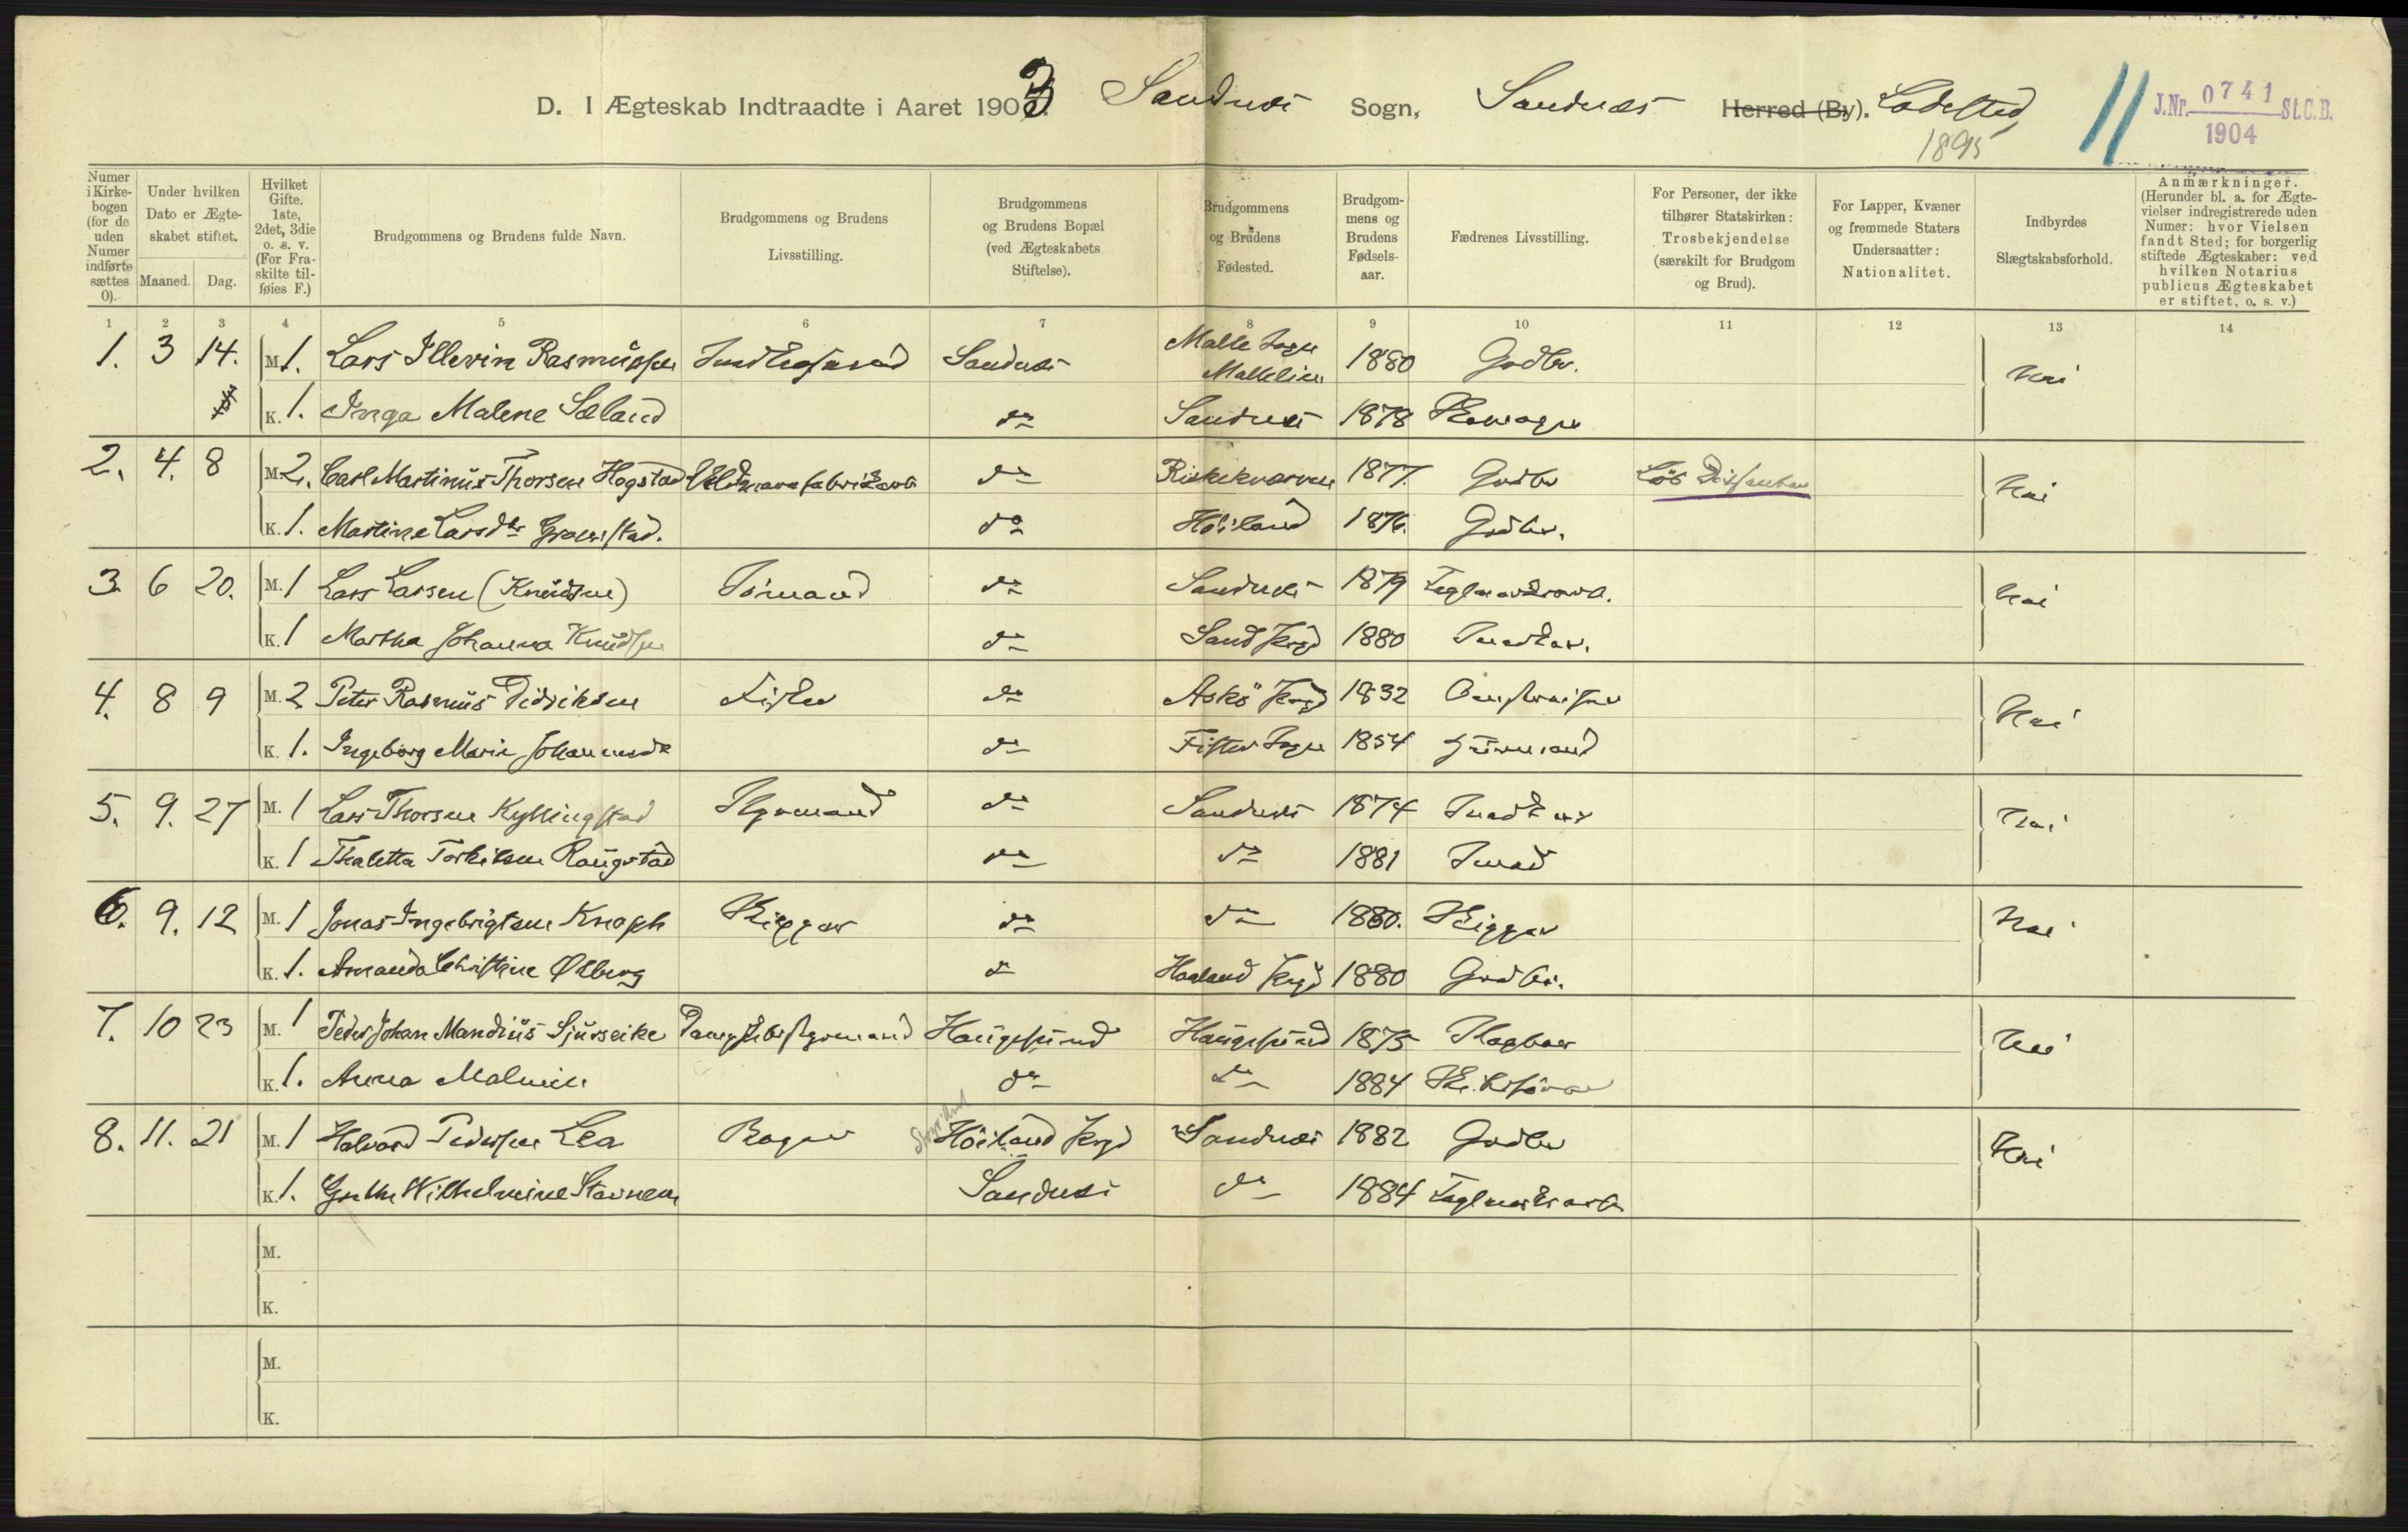 D. I Ægteskab Indtraadte i Aaret 1903. Sandnæs Sogn, Sandnæs Herred (By). Ladested
1895
11
J.Nr. 0741 St.C.B.
1904
Numer i Kirkebogen (for de uden Numer indførte sættes 0).
Under hvilken Dato er Ægteskabet stiftet.
Maaned. Dag.
Hvilket Gifte. 1ste, 2det, 3die o. s. v. (For Fraskilte tilføies F.)
Brudgommens og Brudens fulde Navn.
Brudgommens og Brudens Livsstilling.
Brudgommens og Brudens Bopæl (ved Ægteskabets Stiftelse).
Brudgommens og Brudens Fødested.
Brudgommens og Brudens Fødselsaar.
Fædrenes Livsstilling.
For Personer, der ikke tilhører Statskirken: Trosbekjendelse (særskilt for Brudgom og Brud).
For Lapper, Kvæner og fremmede Staters Undersaatter: Nationalitet.
Indbyrdes Slægtskabsforhold.
Anmærkninger. (Herunder bl. a. for Ægtevielser indregistrerede uden Numer: hvor Vielsen fandt Sted; for borgerlig stiftede Ægteskaber: ved hvilken Notarius publicus Ægteskabet er stiftet, o. s. v.)
1 2 3 4 5 6 7 8 9 10 11 12 13 14
1. 3 14. M. 1. Lars Illevin Rasmussen Sandnæs Malle Sogn 1880 Gndbr. Nei
K. 1. Inga Malene Sæland do Sandnæs 1878 Skomager
2. 4. 8 M. 2. Carl Martinius Thorsen Hogstad Uldvarefabrikarb do Riskekværven 1877. Gndbr Løs Dissenter Nei
K. 1. Martine Larsdtr do Høiland 1876. Gndbr.
3. 6 20. M. 1 Lars Larsen (Knudsen) Sømand do Sandnæs 1879 Teglværksarb. Nei
K. 1 Martha Johanna Knudsen do Sand Prgd 1880
4. 8 9 M. 2 Peter Rasmus Didriksen Fisker do Askø Prgd 1832 Nei
K. 1. Ingeborg Marie Johannesdtr do Fister Sogn 1854 Husmand
5. 9. 27 M. 1 Lars Thorsen Kyllingstad Styrmand do Sandnæs 1874 Nei
K. 1 Thaletta Torkilsen Raugstad do do 1881 Smed
6. 9. 12 M. 1 Jonas Ingebrigtsen Knoph Skipper do do 1880. Skipper Nei
K. 1. Amanda Christine Østberg do Haaland Prgd 1880 Gndbr.
7. 10 23 M. 1 Peder Johan Mandius Sjurseike Dampskibsstyrmand Haugesund Haugesund 1875 Nei
K. 1. Anna Malmin do do 1884 Skibsfører
8. 11. 21 M. 1 Halvard Pedersen Lea Bager Høiland Prgd Sandnæs 1882 Gndbr Nei
K. 1. Wilhelmine Stavnem Sandnæs do 1884 Teglværksarb
M.
K.
M.
K.